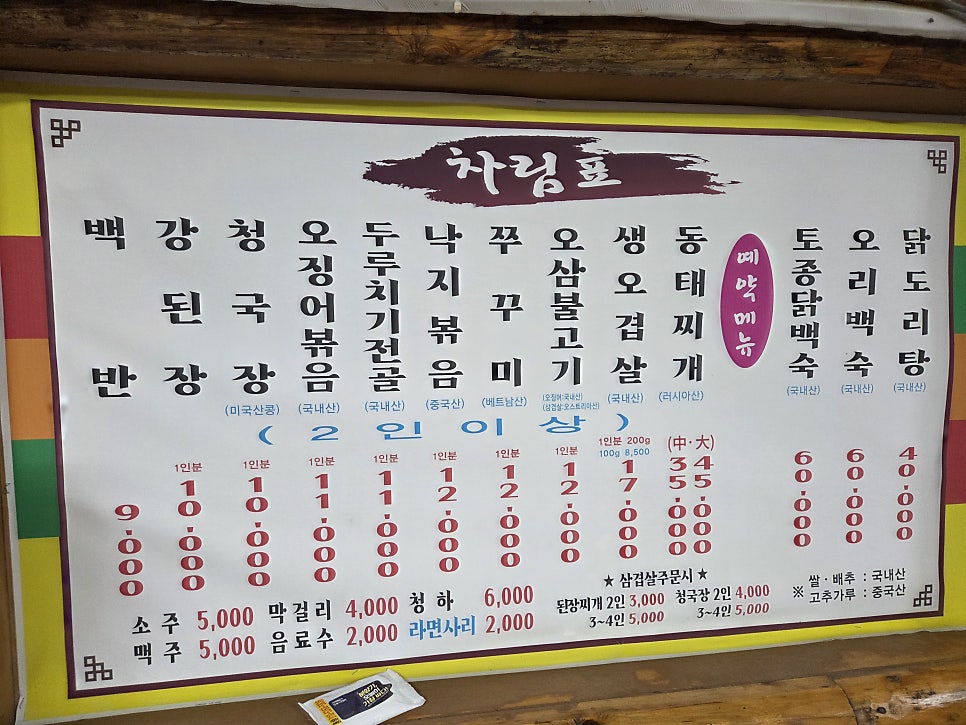 차림표
백반
9.000
강된장
1인분
10.000
청국장
(미국산콩)
1인분
10.000
오징어볶음
(국내산)
1인분
11.000
두루치기전골
(국내산)
1인분
11.000
낙지볶음
(중국산)
1인분
12.000
쭈꾸미
(베트남산)
1인분
12.000
오삼불고기
(오징어:국내산)
(삼겹살:오스트리아산)
1인분
12.000
생오겹살
(국내산)
1인분 200g
100g 8,500
17.000
동태찌개
(러시아산)
(中·大)
35.000 45.000
(2인이상)
예약메뉴
토종닭백숙
(국내산)
60.000
오리백숙
(국내산)
60.000
닭도리탕
(국내산)
40.000
소주 5,000 막걸리 4,000 청하 6,000
맥주 5,000 음료수 2,000 라면사리 2,000
★ 삼겹살주문시 ★
된장찌개 2인 3,000 청국장 2인 4,000
3~4인 5,000 3~4인 5,000
※ 쌀·배추 : 국내산
고추가루 : 중국산